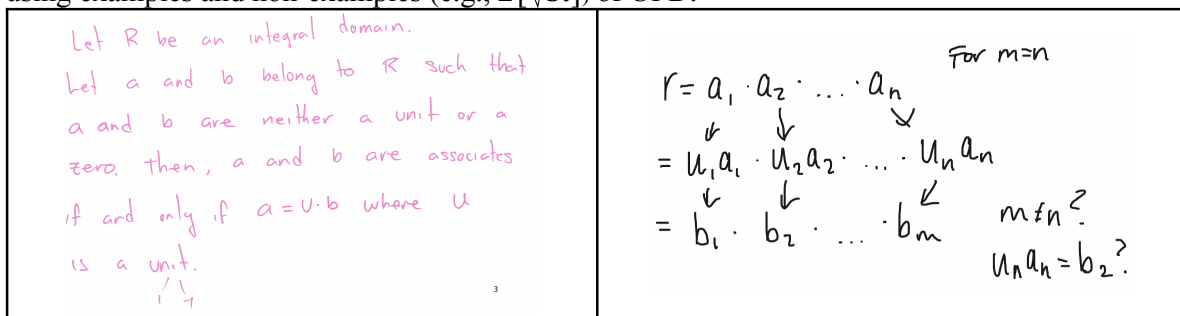 using examples and non-examples (e.g., of UFD.
Let R be an integral domain.
Let a and b belong to R such that
a and b are neither a unit or a
zero. Then, a and b are associates
if and only if a = u·b where u
is a unit.
3
For m=n
r = a₁ · a₂ · ... · aₙ
= u₁a₁ · u₂a₂ · ... · uₙaₙ
= b₁ · b₂ · ... · bₘ
m≠n?
uₙaₙ = b₂?